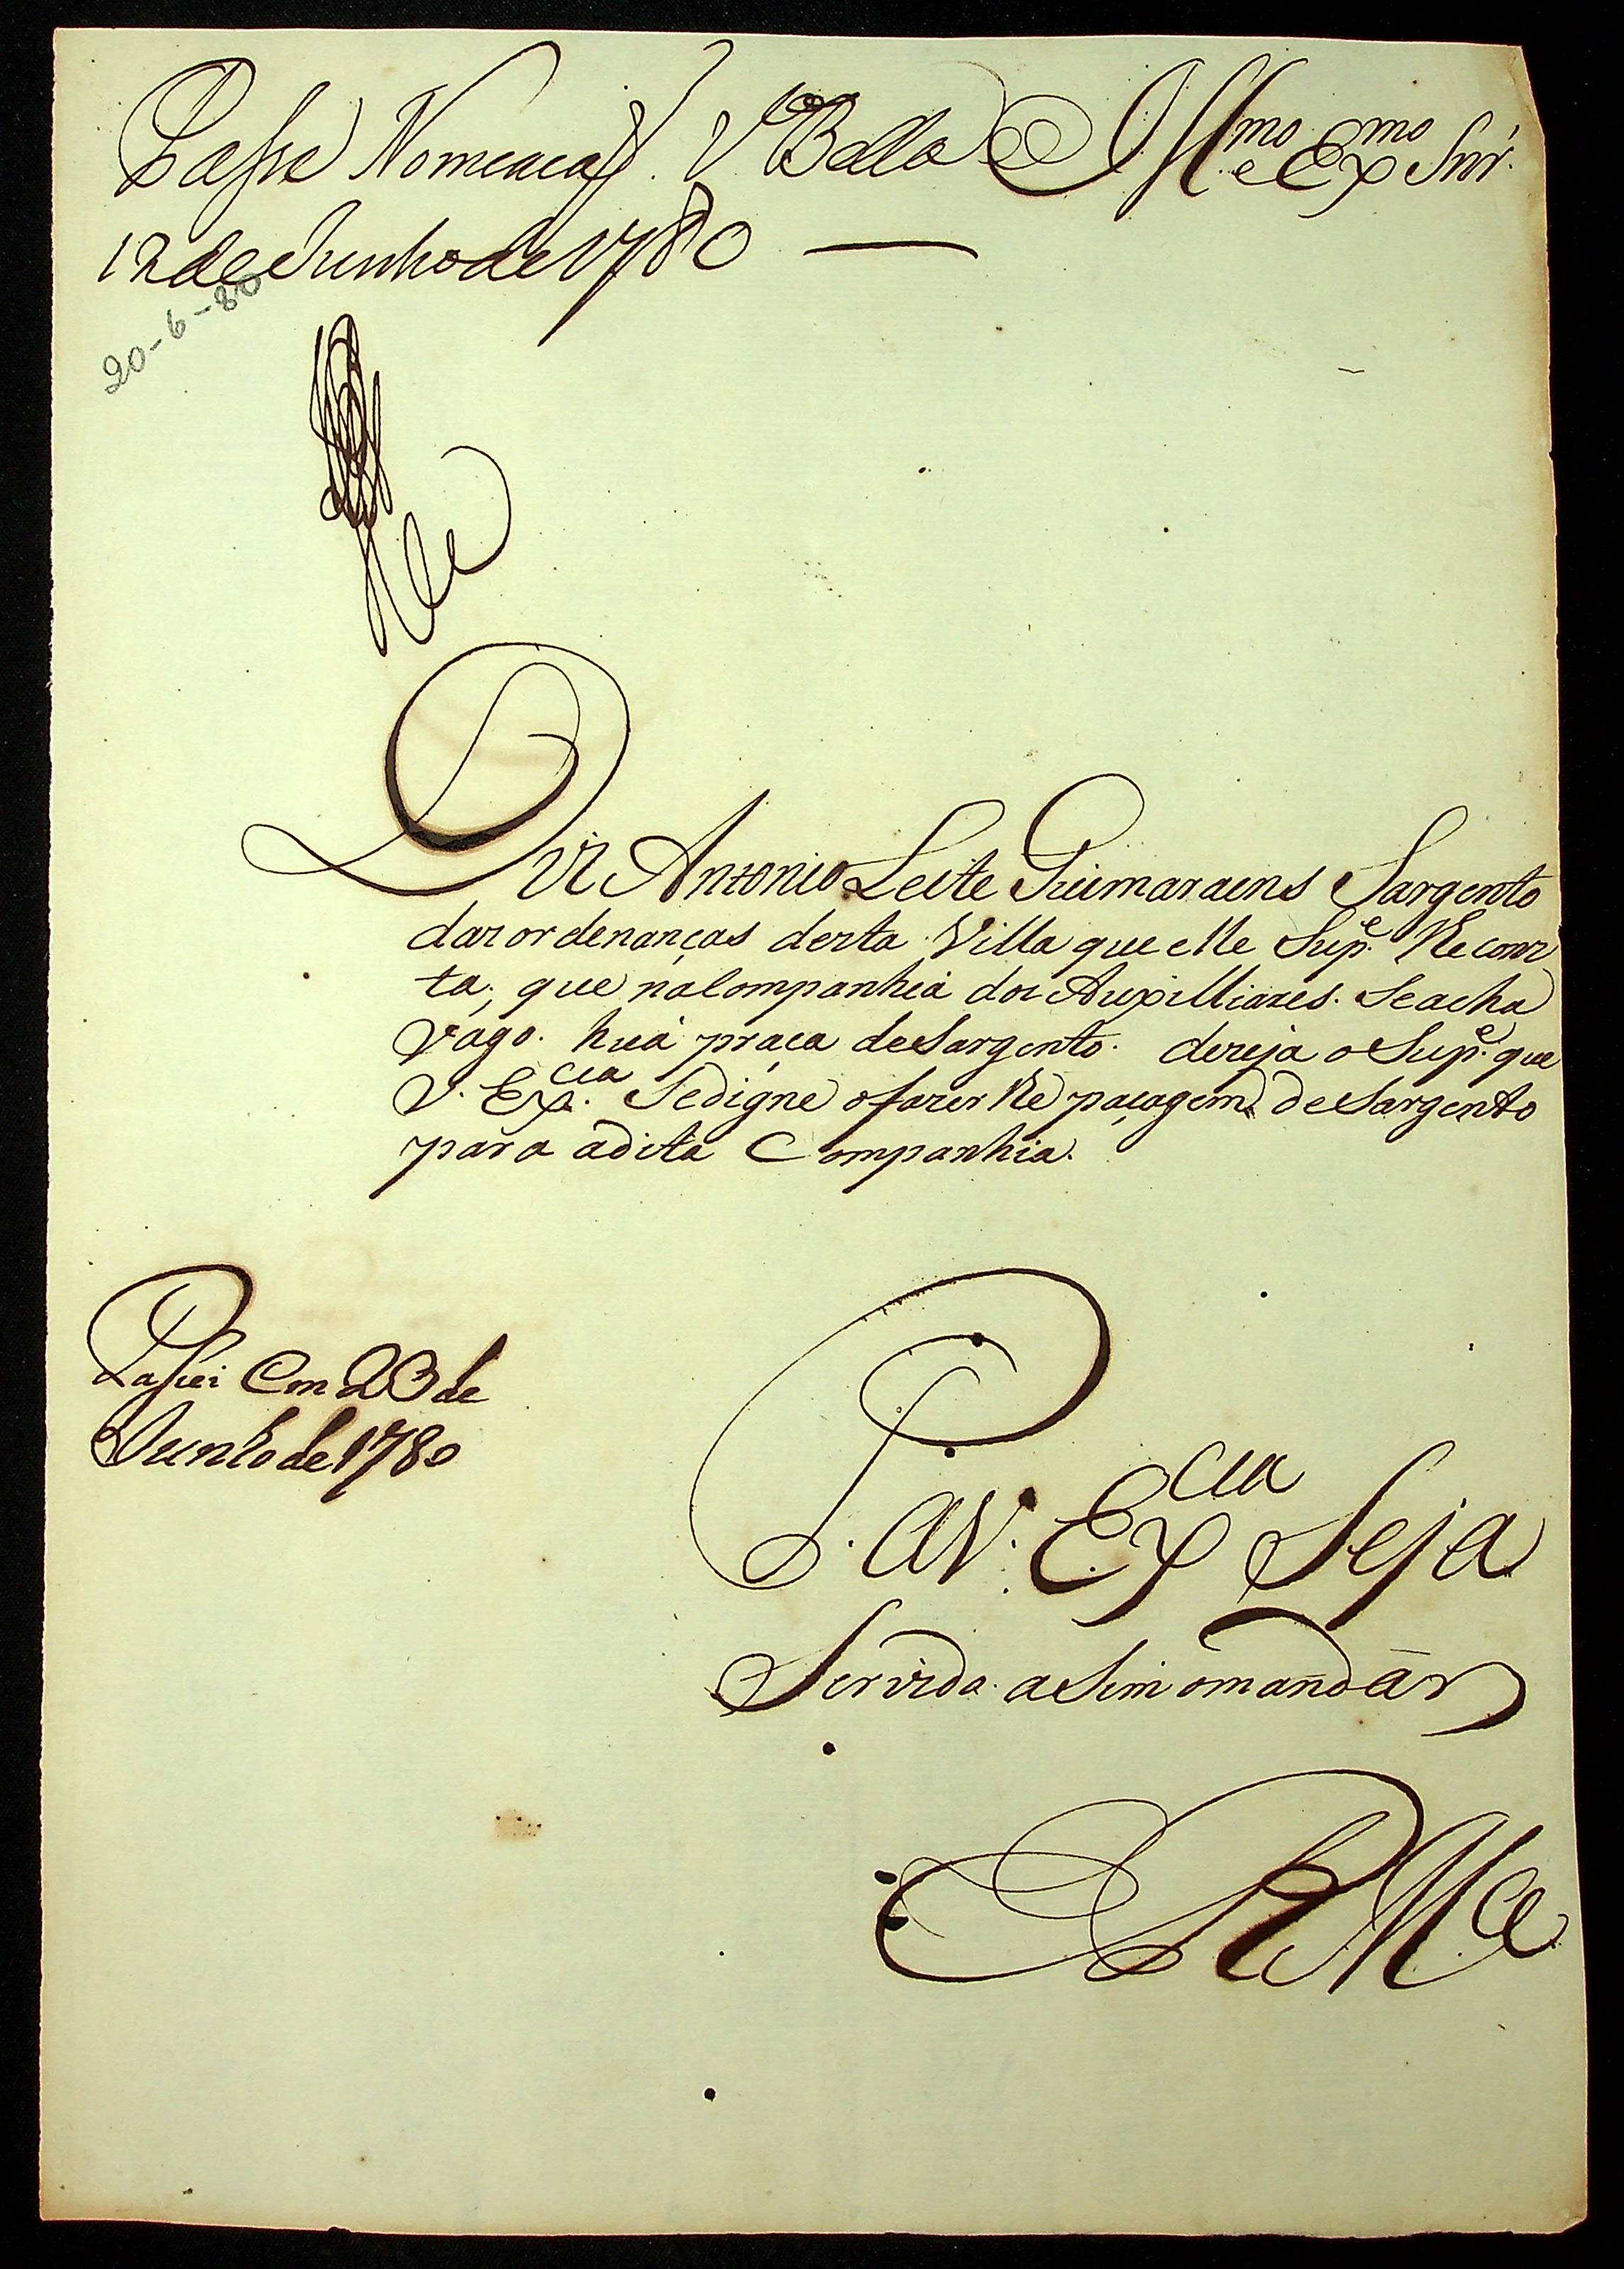 Passe Nomeação. V.ª Bella Ill.mo e Ex.mo Snr.
12 de Junho de 1780
20-6-80
Diz Antonio Leite Guimaraens Sargento
das ordenanças desta Villa que elle Sup.e lhe cons
ta; que na Companhia dos Auxilliares. Se acha
vago. huá praça de Sargento. deseja o Sup.e que
V. Ex.cia Se digne o fazer lhe paçagem de Sargento
para a dita Companhia.
Passei em 23 de
Junho de 1780
P. a V. Ex.cia Seja
Servido. a Sim o mandar
E R M.ce